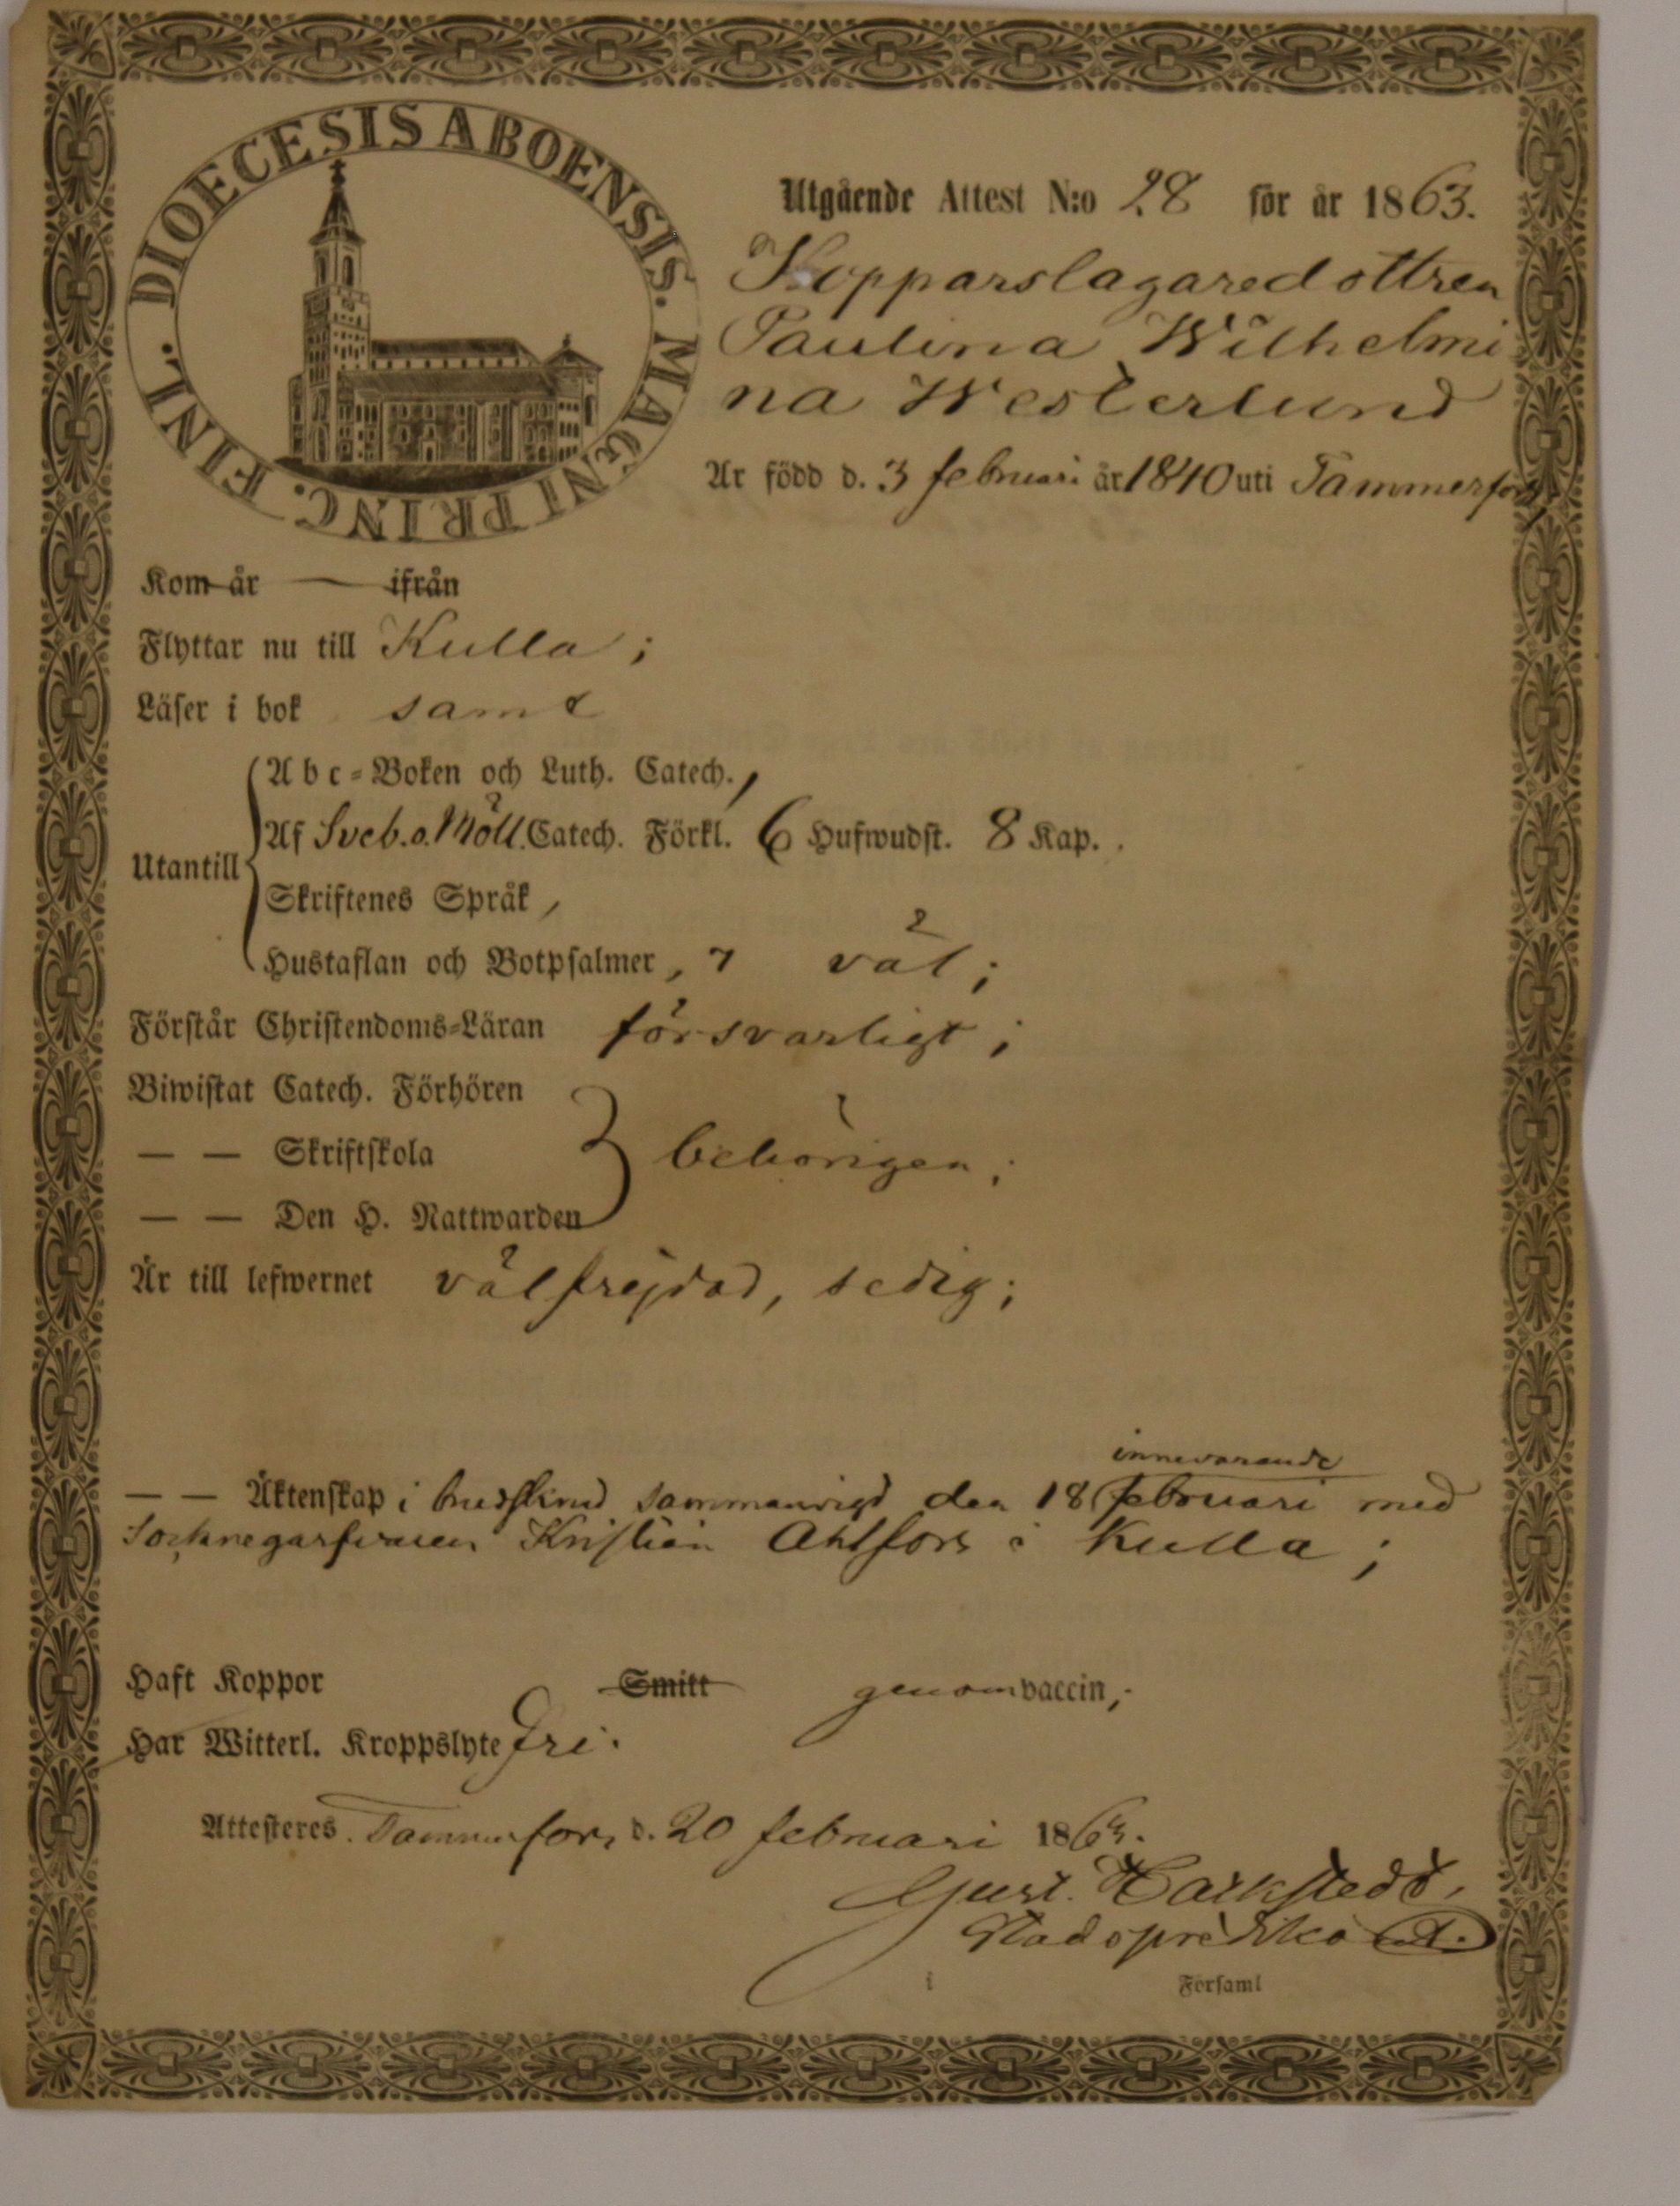 DIOECESIS ABOENSIS. MAGNI PRINC. FINL.
Utgående Attest N:o 28 för år 1863.
Kopparslagaredottren
Paulina Wilhelmi
na Westerlund
Är född d. 3 februari år 1840 uti Tammerfors,
Kom år — ifrån
Flyttar nu till Kulla;
Läser i bok samt
Utantill
Abc-Boken och Luth. Catech.,
Af Sveb. o. Möll. Catech. Förkl. 6 Hufwudst. 8 Kap.
Skriftenes Språk,
Hustaflan och Botpsalmer, 7 väl;
Förstår Christendoms-Läran försvarligt;
Biwistat Catech. Förhören
— — Skriftskola behörigen;
— — Den H. Nattwarden
Är till lefwernet välfrejdad, sedig;
innevarande
— — Äktenskap i sammanvigd den 18 februari med
Kristian Ahlfors i Kulla;
Haft Koppor Smitt genom vaccin;
Har Witterl. Kroppslyte Fri.
Attesteras Tammerfors d. 20 februari 1863.
Gust.
Stadspredikant.
i Församl